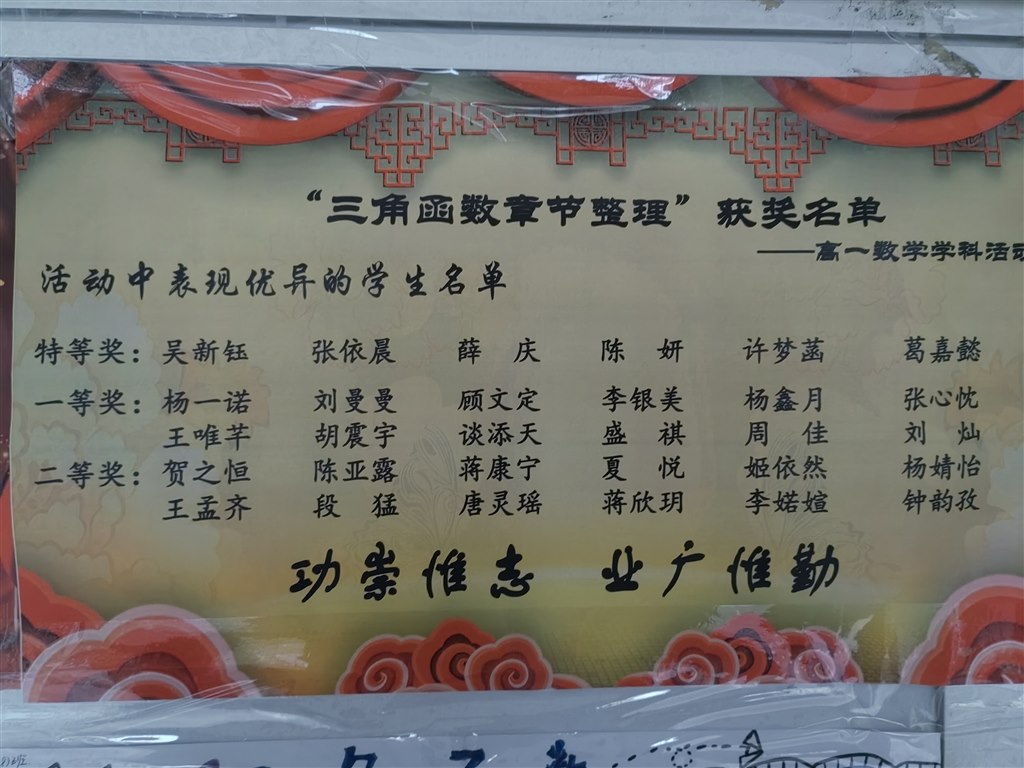 “三角函数章节整理”获奖名单
——高一数学学科活动
活动中表现优异的学生名单
特等奖：吴新钰 张依晨 薛 庆 陈 妍 许梦菡 葛嘉懿
一等奖：杨一诺 刘曼曼 顾文定 李银美 杨鑫月 张心忱
王唯芊 胡震宇 谈添天 盛 祺 周 佳 刘 灿
二等奖：贺之恒 陈亚露 蒋康宁 夏 悦 姬依然 杨婧怡
王孟齐 段 猛 唐灵瑶 蒋欣玥 李婼媗 钟韵孜
功崇惟志 业广惟勤